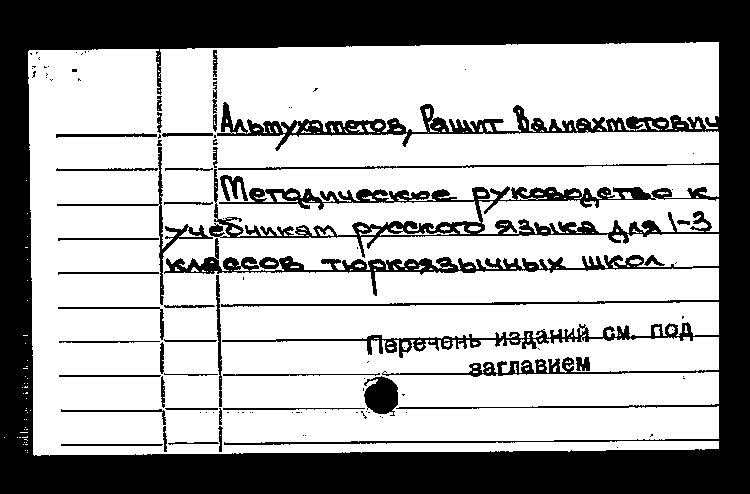 Альмухаметов, Рашит Валиахметович
Методическое руководство к
учебникам русского языка для 1-3
классов тюркоязычных школ.
Перечень изданий см. под
заглавием